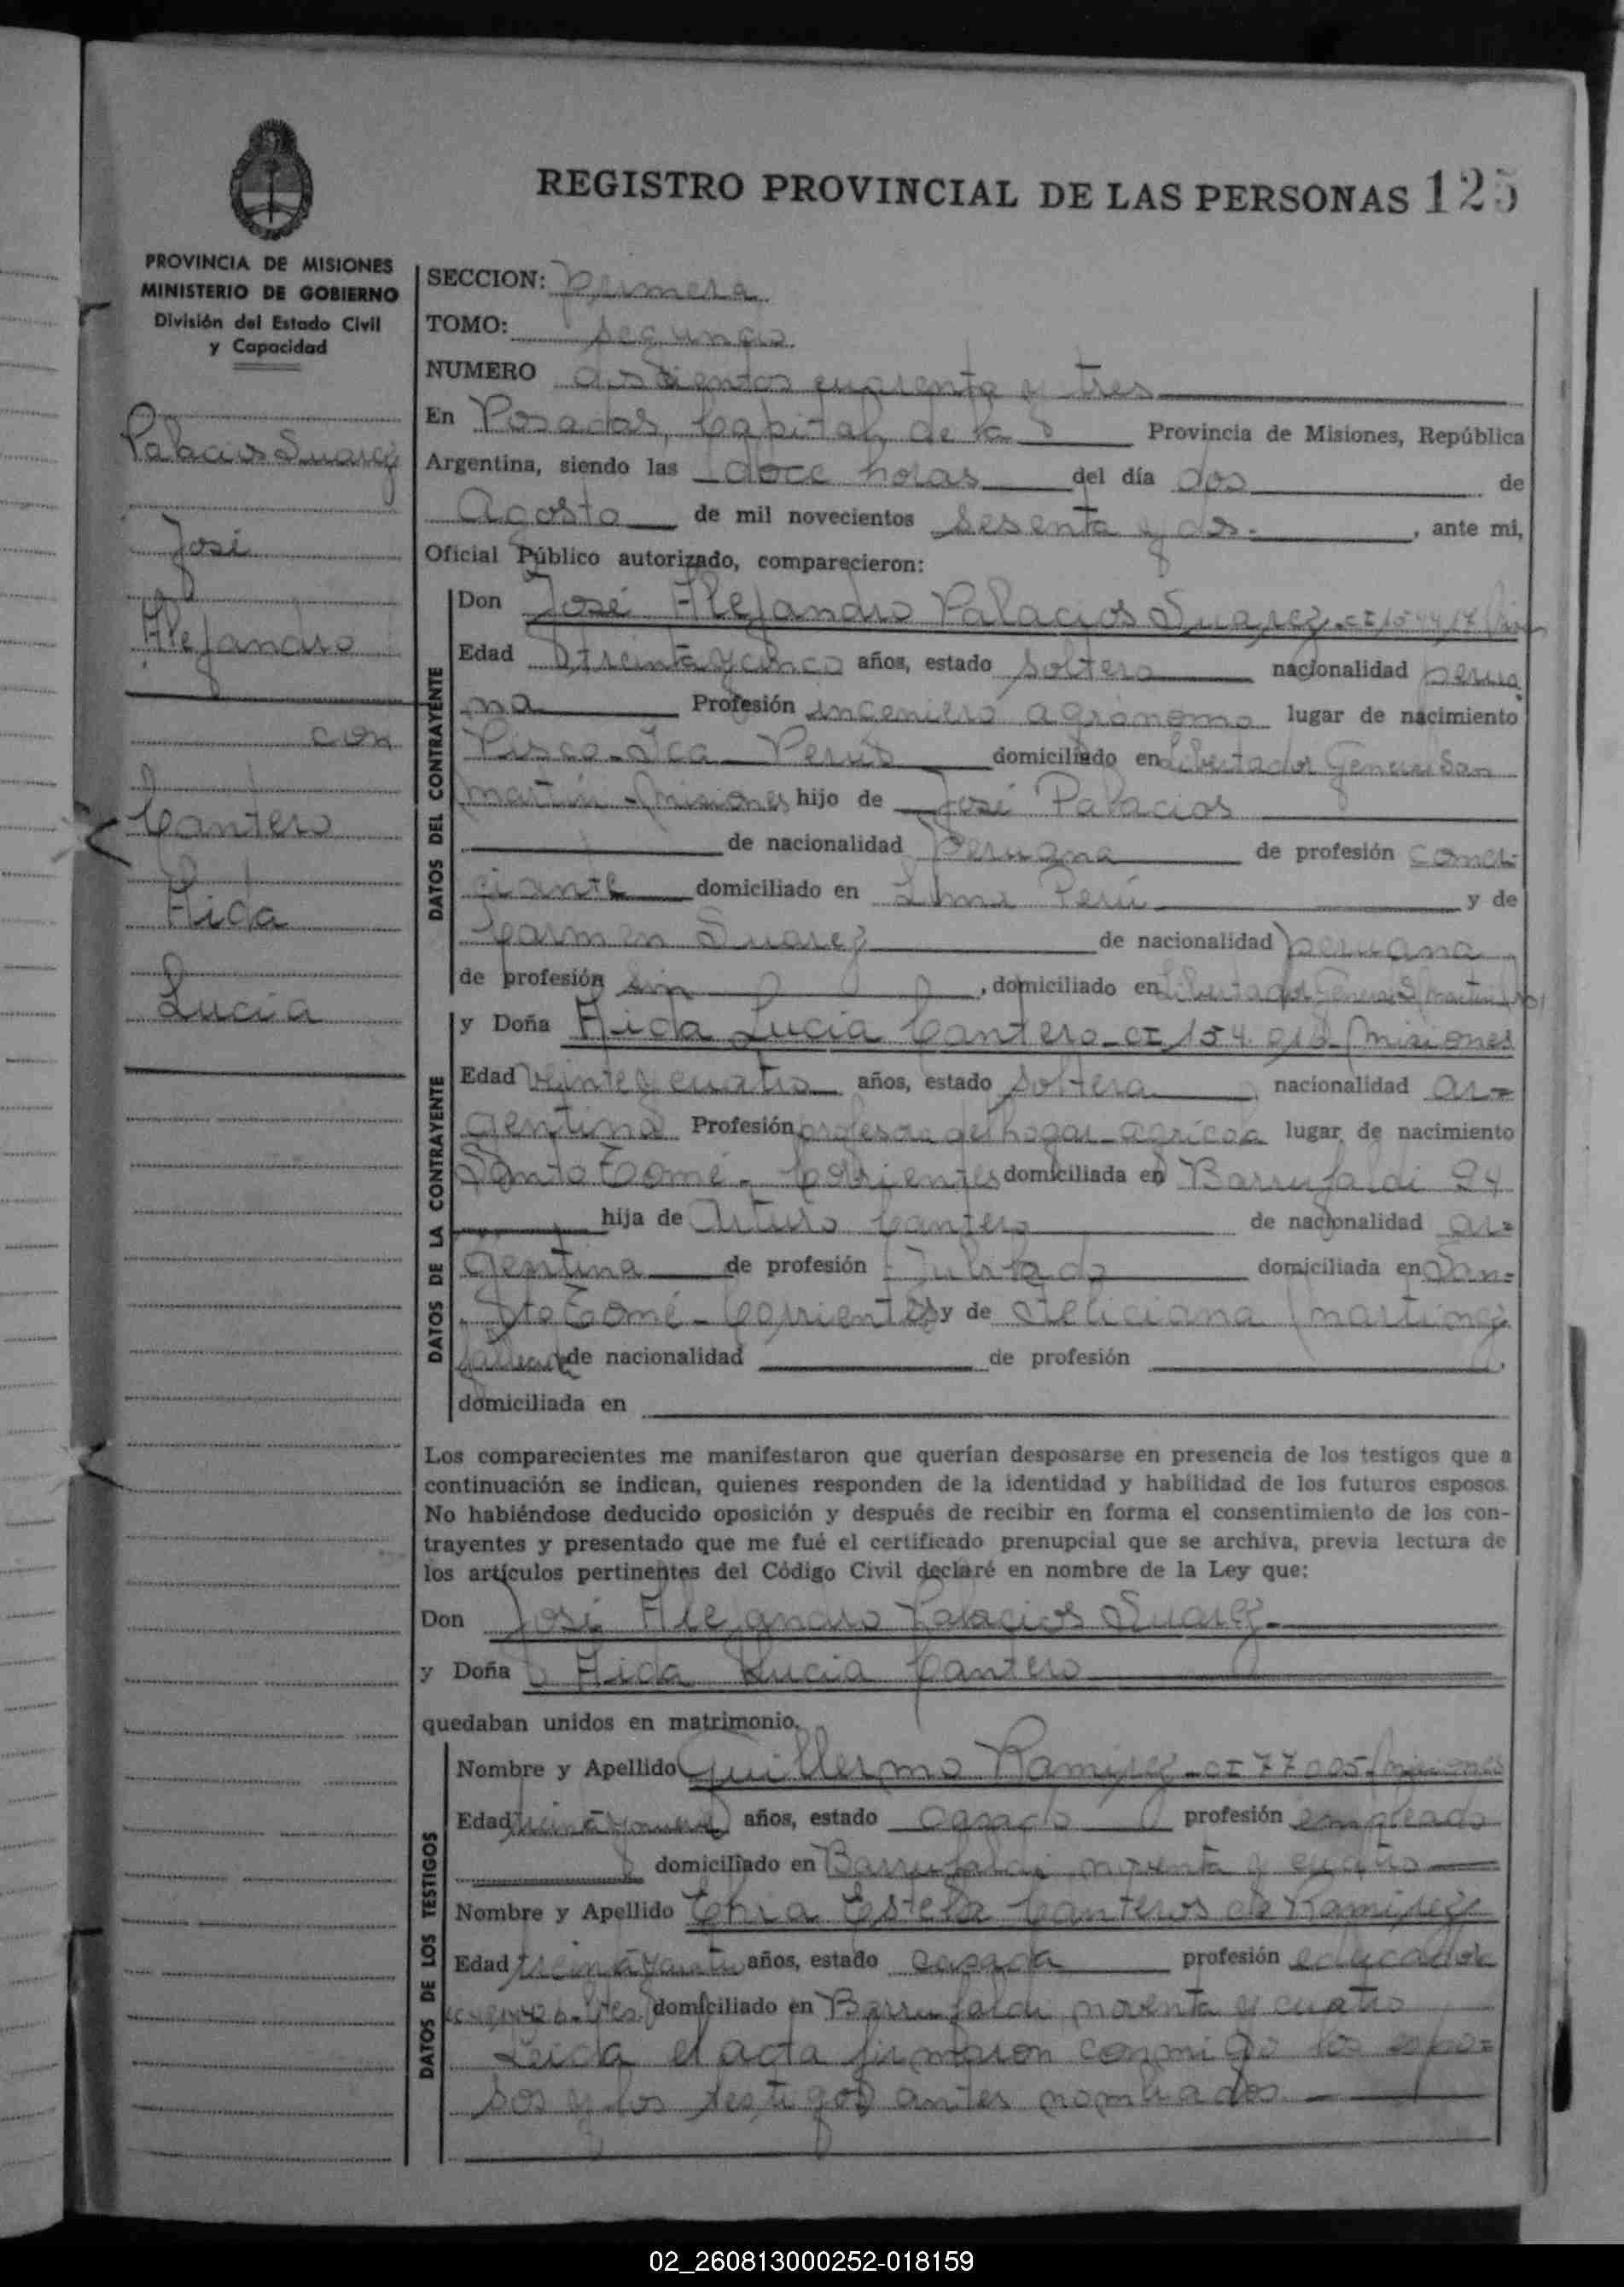 REGISTRO PROVINCIAL DE LAS PERSONAS 125
PROVINCIA DE MISIONES
MINISTERIO DE GOBIERNO
División del Estado Civil
y Capacidad
Palacios Suarez
José
Alejandro
con
Cantero
Aida
Lucia
SECCION: primera
TOMO: segundo
NUMERO doscientos cuarenta y tres
En Posadas, Capital de la Provincia de Misiones, República
Argentina, siendo las doce horas del día dos de
Agosto de mil novecientos sesenta y dos.- , ante mi,
Oficial Público autorizado, comparecieron:
DATOS DEL CONTRAYENTE
Don José Alejandro Palacios Suarez. CI
Edad treinta y cinco años, estado soltero nacionalidad perua
na Profesión ingeniero agrónomo lugar de nacimiento
Pisco-Ica Perú domiciliado en Libertador General San
Martin - Misiones hijo de José Palacios
de nacionalidad peruana de profesión comer-
ciante domiciliado en Lima Perú y de
Carmen Suarez de nacionalidad peruana
de profesión sin , domiciliado en Libertador General S. Martin
DATOS DE LA CONTRAYENTE
y Doña Aida Lucia Cantero - CI 154. Misiones
Edad veinte y cuatro años, estado soltera nacionalidad ar=
gentina Profesión profesora del hogar agrícola lugar de nacimiento
Santo Tomé - Corrientes domiciliada en Barrufaldi 94
hija de Arturo Cantero de nacionalidad ar=
gentina de profesión Jubilado domiciliada en San=
to Tomé - Corrientes y de Feliciana Martinez
fallecida de nacionalidad de profesión
domiciliada en
Los comparecientes me manifestaron que querían desposarse en presencia de los testigos que a
continuación se indican, quienes responden de la identidad y habilidad de los futuros esposos.
No habiéndose deducido oposición y después de recibir en forma el consentimiento de los con-
trayentes y presentado que me fué el certificado prenupcial que se archiva, previa lectura de
los artículos pertinentes del Código Civil declaré en nombre de la Ley que:
Don José Alejandro Palacios Suarez-
y Doña Aida Lucia Cantero
quedaban unidos en matrimonio.
DATOS DE LOS TESTIGOS
Nombre y Apellido Guillermo Ramirez - CI 77.005 Misiones
Edad treinta y nueve años, estado casado profesión empleado
domiciliado en Barrufaldi noventa y cuatro
Nombre y Apellido Estela Canteros de Ramirez
Edad treinta y cuatro años, estado casada profesión educadora
domiciliado en Barrufaldi noventa y cuatro
Leída el acta firmaron conmigo los espo=
sos y los testigos antes nombrados
02_260813000252-018159